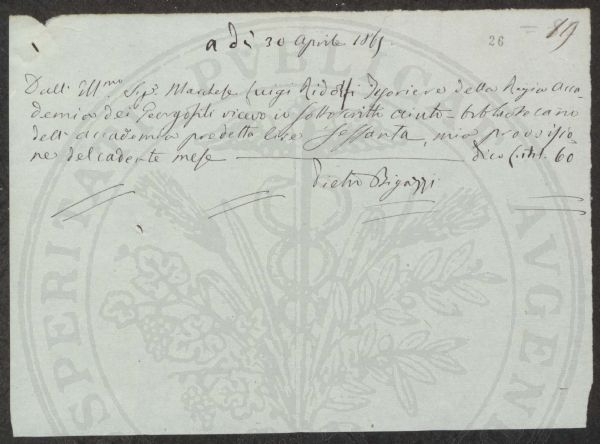 26 89
a dì 30 Aprile 1865
Dall' Ill.mo Sig. Marchese Luigi Ridolfi Tesoriere della Regia Acca-
demia dei Georgofili ricevo io sottoscritto aiuto-bibliotecario
dell' accademia predetta lire Sessanta, mia provvisio
ne del cadente mese dico L. itl. 60
Pietro Bigazzi
PUBLICAE
AUGENDAE